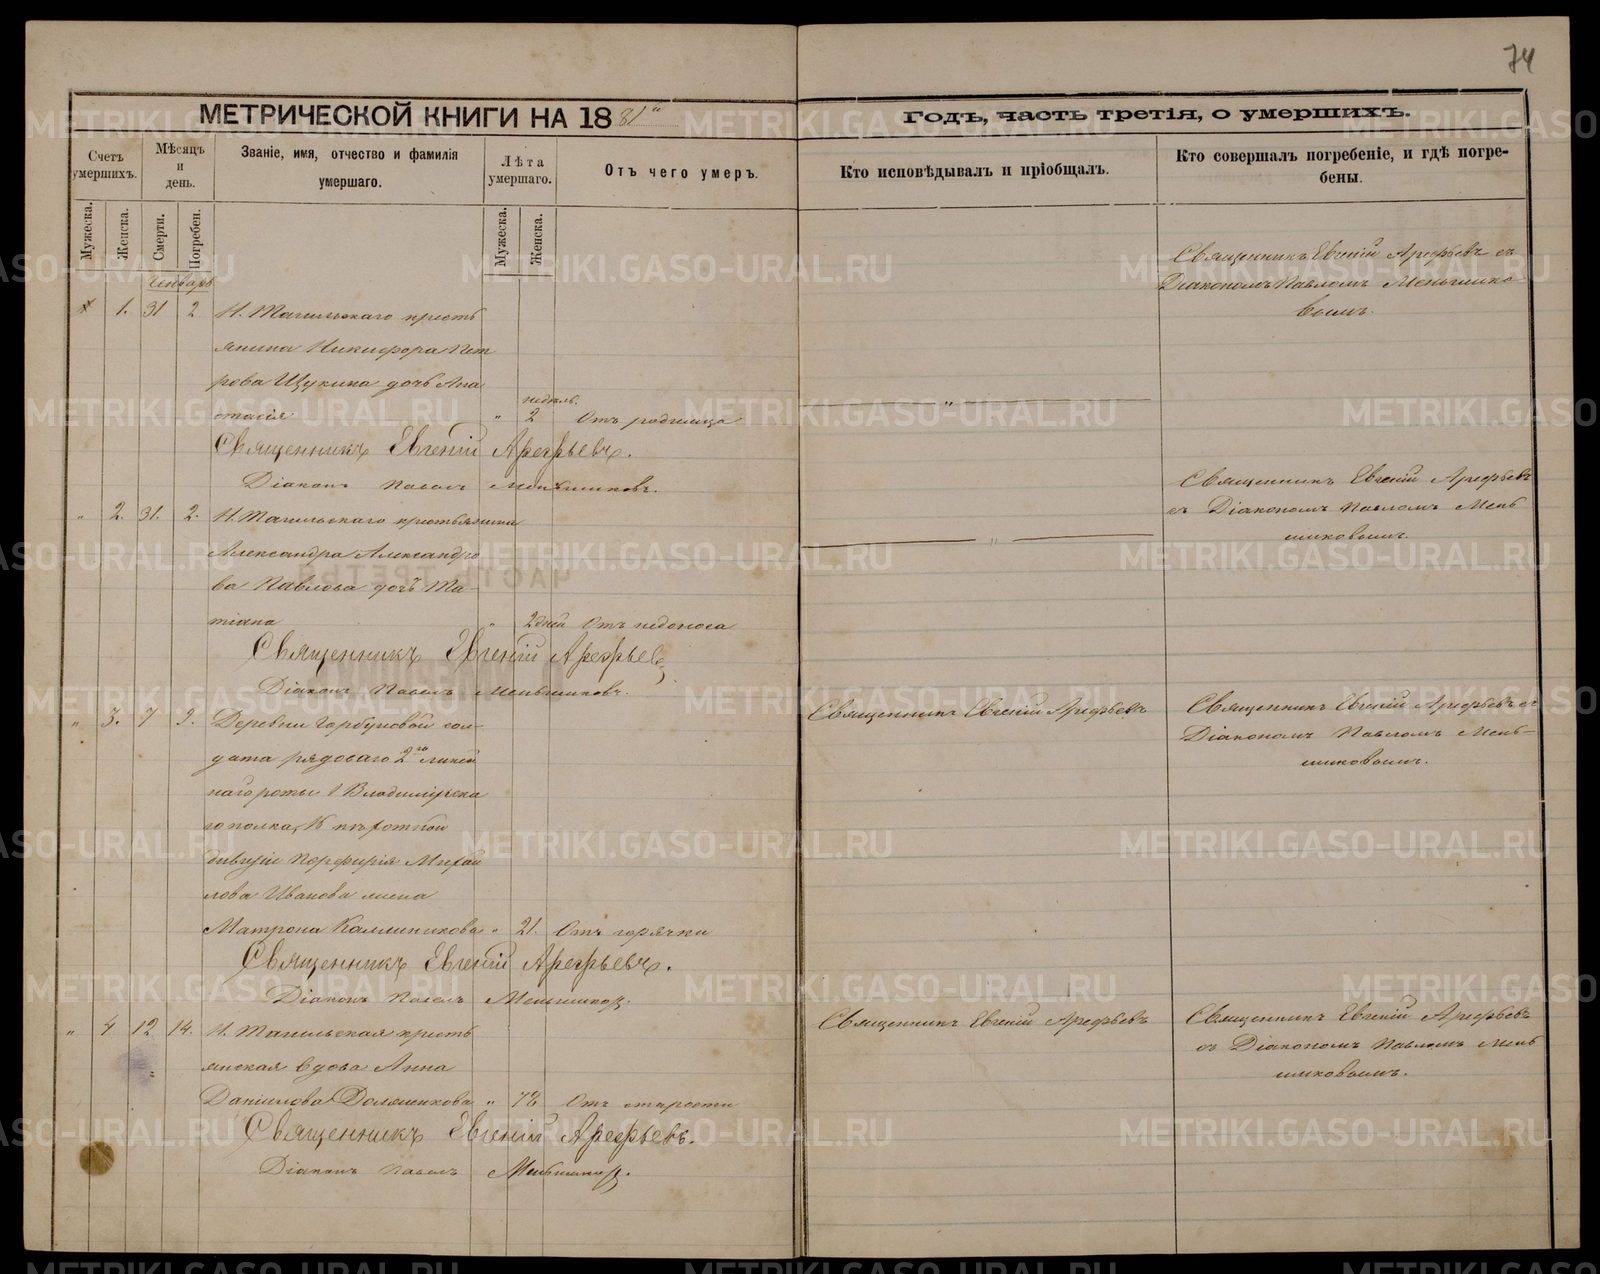 74
МЕТРИЧЕСКОЙ КНИГИ НА 1881й
Годъ, часть третія, о умершихъ.
Счетъ умершихъ.
Мѣсяцъ и день.
Званіе, имя, отчество и фамилія умершаго.
Лѣта умершаго.
Отъ чего умеръ.
Кто исповѣдывалъ и пріобщалъ.
Кто совершалъ погребеніе, и гдѣ погре-
бены.
Мужеска.
Женска.
Смерти.
Погребен.
Мужеска.
Женска.
Генварь
1. 31 2 Н. Тагильскаго кресть
янина Никифора Пет
рова Щукина дочь Ана
стасія " 2 недѣль. Отъ родимца
Священникъ Евгеній Арефьевъ съ
Діакономъ Павломъ Меньшико-
вымъ.
Священникъ Евгеній Арефьевъ.
Діаконъ Павелъ Меньшиковъ.
" 2. 31. 2. Н. Тагильскаго крестьянина
Александра Александро
ва Павлова дочь Та-
тіана " 2 дней Отъ недоноса
Священникъ Евгеній Арефьевъ
съ Діакономъ Павломъ Мень
шиковымъ.
Священникъ Евгеній Арефьевъ
Діаконъ Павелъ Меньшиковъ.
" 3. 7 9. Деревни Горбуновой сол-
дата рядоваго 2го линей
наго роты 1 Владимірска
го полка, 16 пѣхотной
дивизіи Порфирія Михай
лова Иванова жена
Матрона Каллиникова " 21. Отъ горячки
Священникъ Евгеній Арефьевъ
Священникъ Евгеній Арефьевъ съ
Діакономъ Павломъ Мень-
шиковымъ.
Священникъ Евгеній Арефьевъ.
Діаконъ Павелъ Меньшиковъ.
" 4 12 14. Н. Тагильская кресть
янская вдова Анна
Даніилова " 78 Отъ старости
Священникъ Евгеній Арефьевъ
Священникъ Евгеній Арефьевъ
съ Діакономъ Павломъ Мень
шиковымъ.
Священникъ Евгеній Арефьевъ.
Діаконъ Павелъ Меньшиковъ.
METRIKI.GASO-URAL.RU